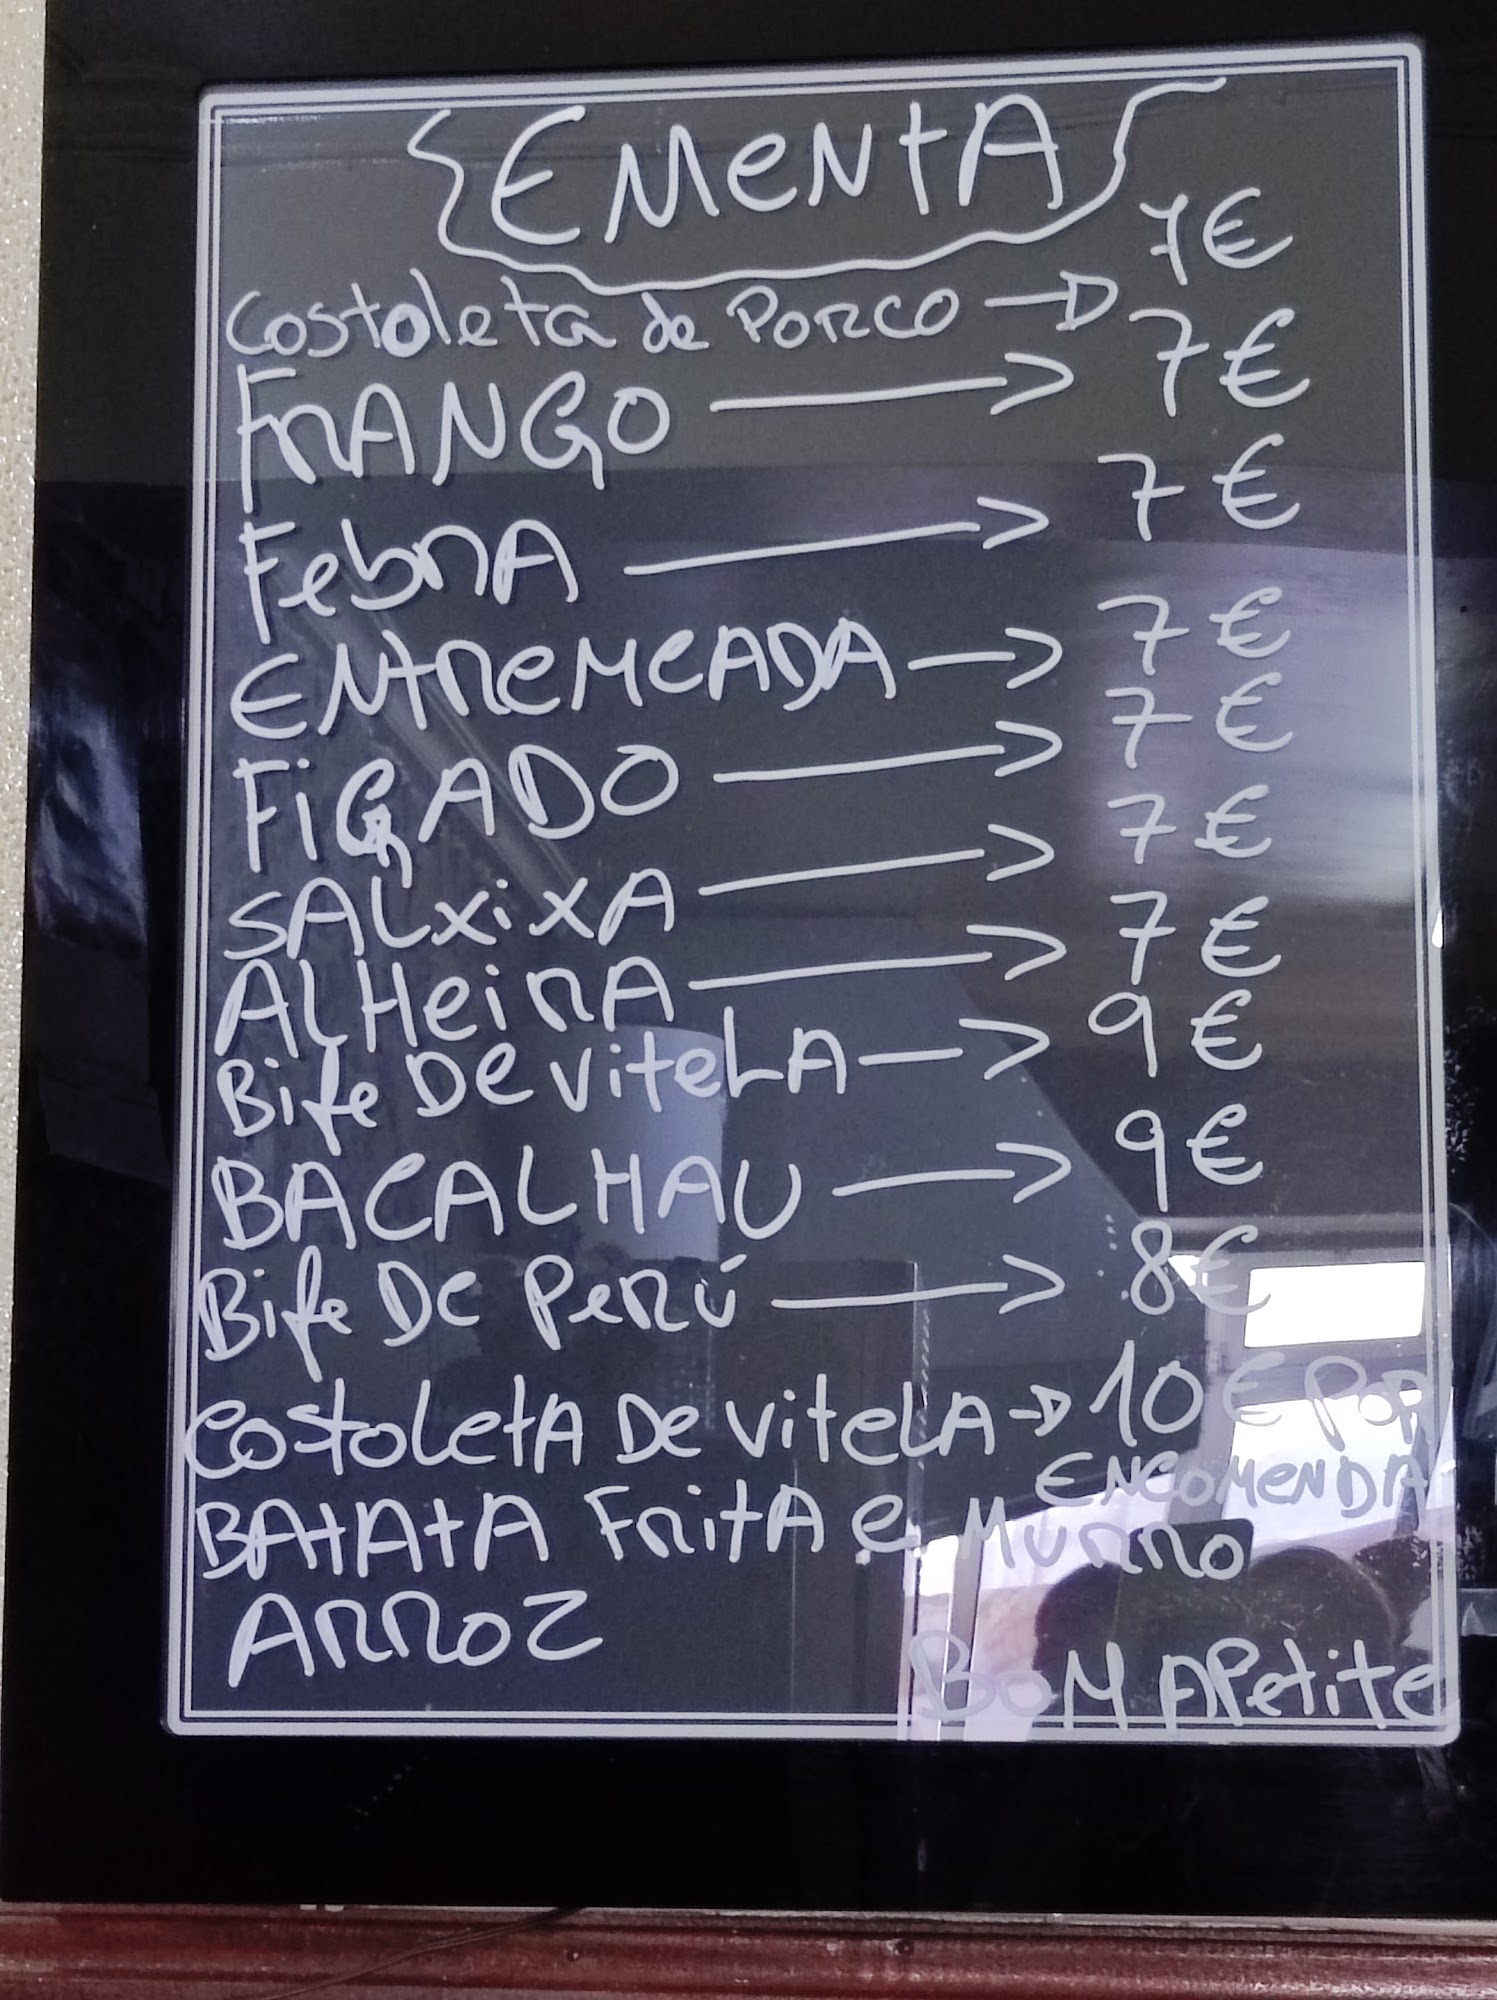 EMENTA
Costoleta de PORCO → 7€
FRANGO → 7€
FebRA → 7€
ENtReMeADA → 7€
FiGADO → 7€
SALxixA → 7€
ALHeiRA → 7€
Bife De ViteLA → 9€
BACALHAU → 9€
Bife De PeRú → 8€
CostoLetA De ViteLA → 10€ POR
ENCOMENDA
BAtAtA FRitA e MURRO
ARROZ
BOM APetite